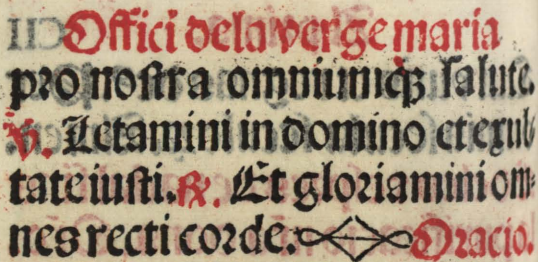 Offici dela verge maria
pro nostra omniumq̃ salute.
℣. Letamini in domino et exul-
tate iusti. ℟. Et gloriamini om-
nes recti corde. Oracio.